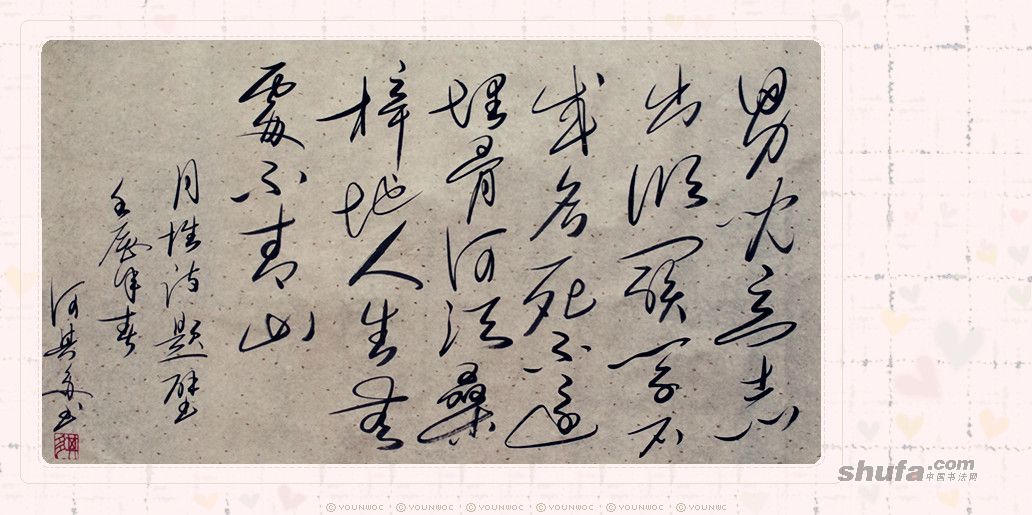 男兒立志
出鄉關學不
成名死不還
埋骨何須桑
梓地人生無
處不青山
月性詩題壁
壬辰年春
何其書
shufa.com
中国书法网
© YOUNWOC · © YOUNWOC · © YOUNWOC · © YOUNWOC · © YOUNWOC · © YOUNWOC